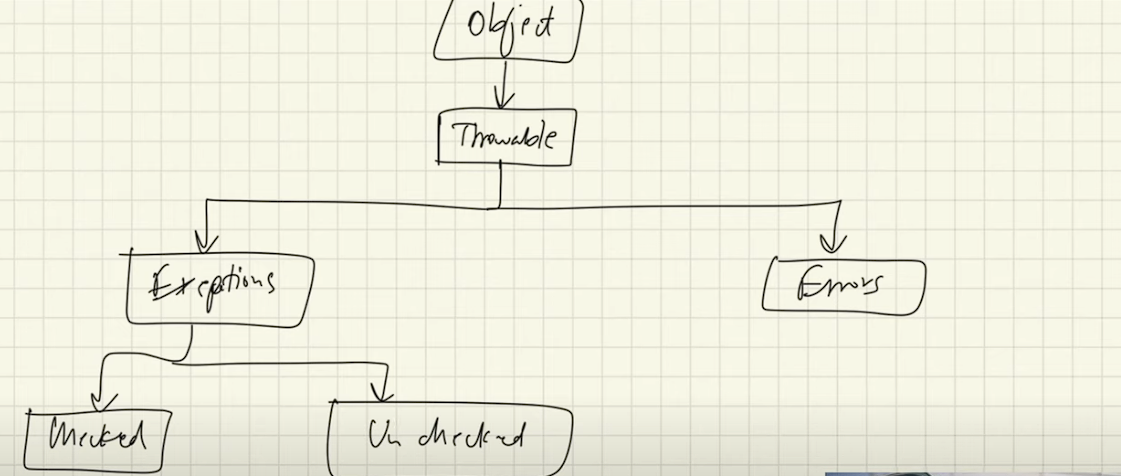 Object
Throwable
Exceptions
Errors
Checked
Un checked